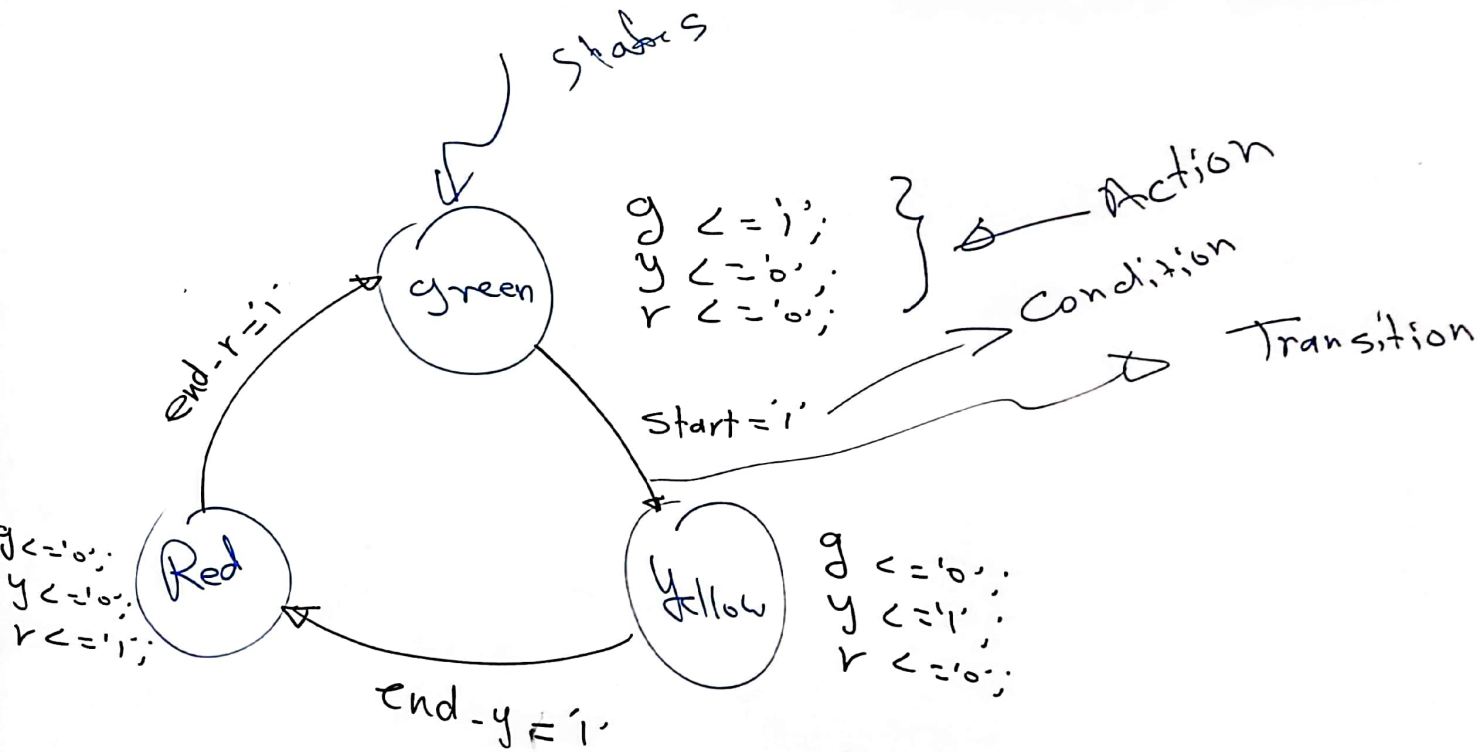 states
green
g <= '1';
y <= '0';
r <= '0';
Action
Condition
Transition
end-r='1'
start='1'
Red
g<='0';
y<='0';
r<='1';
Yellow
g <='0';
y <='1';
r <='0';
end-y='1'